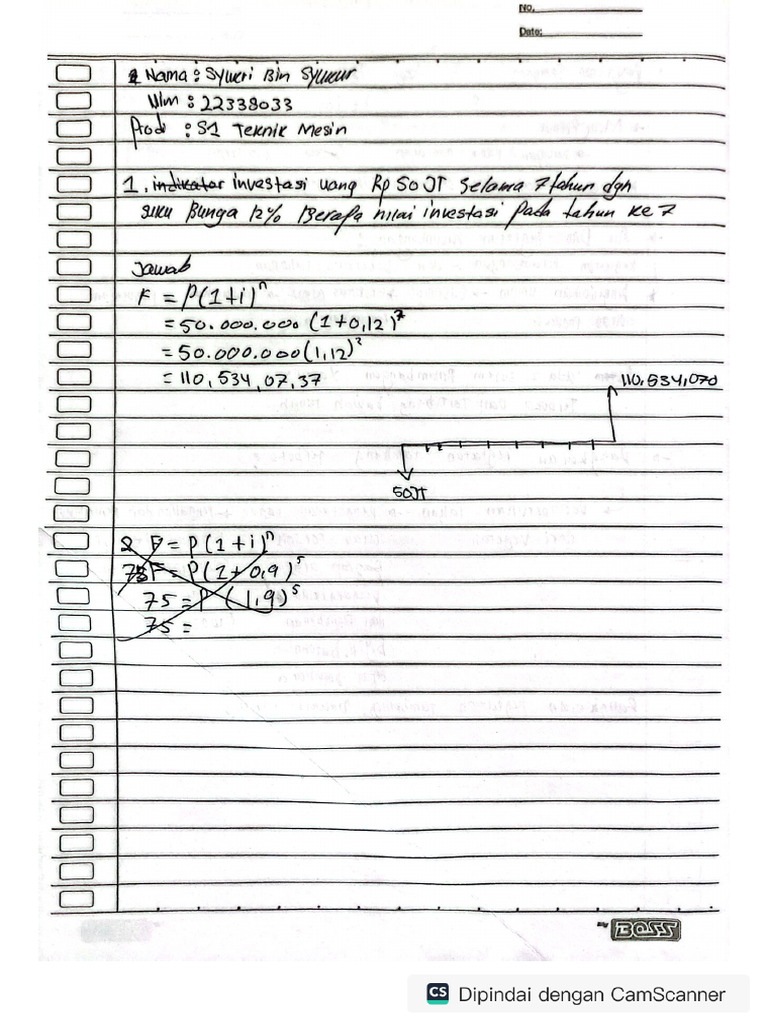 No.
Date:
Nama : Syukri Bin Syukur
Nim : 22338033
Prodi : S1 Teknik Mesin
1. indikator investasi uang Rp 50 JT Selama 7 tahun dgn
suku Bunga 12% Berapa nilai investasi pada tahun ke 7
Jawab
F = P(1+i)ⁿ
= 50.000.000 (1+0,12)⁷
= 50.000.000 (1,12)⁷
= 110,534,07,37
110,534,070
50JT
2 F = P(1+i)ⁿ
75 F = P(1+0,9)⁵
75 = P (1,9)⁵
75 =
by BOSS
CS Dipindai dengan CamScanner